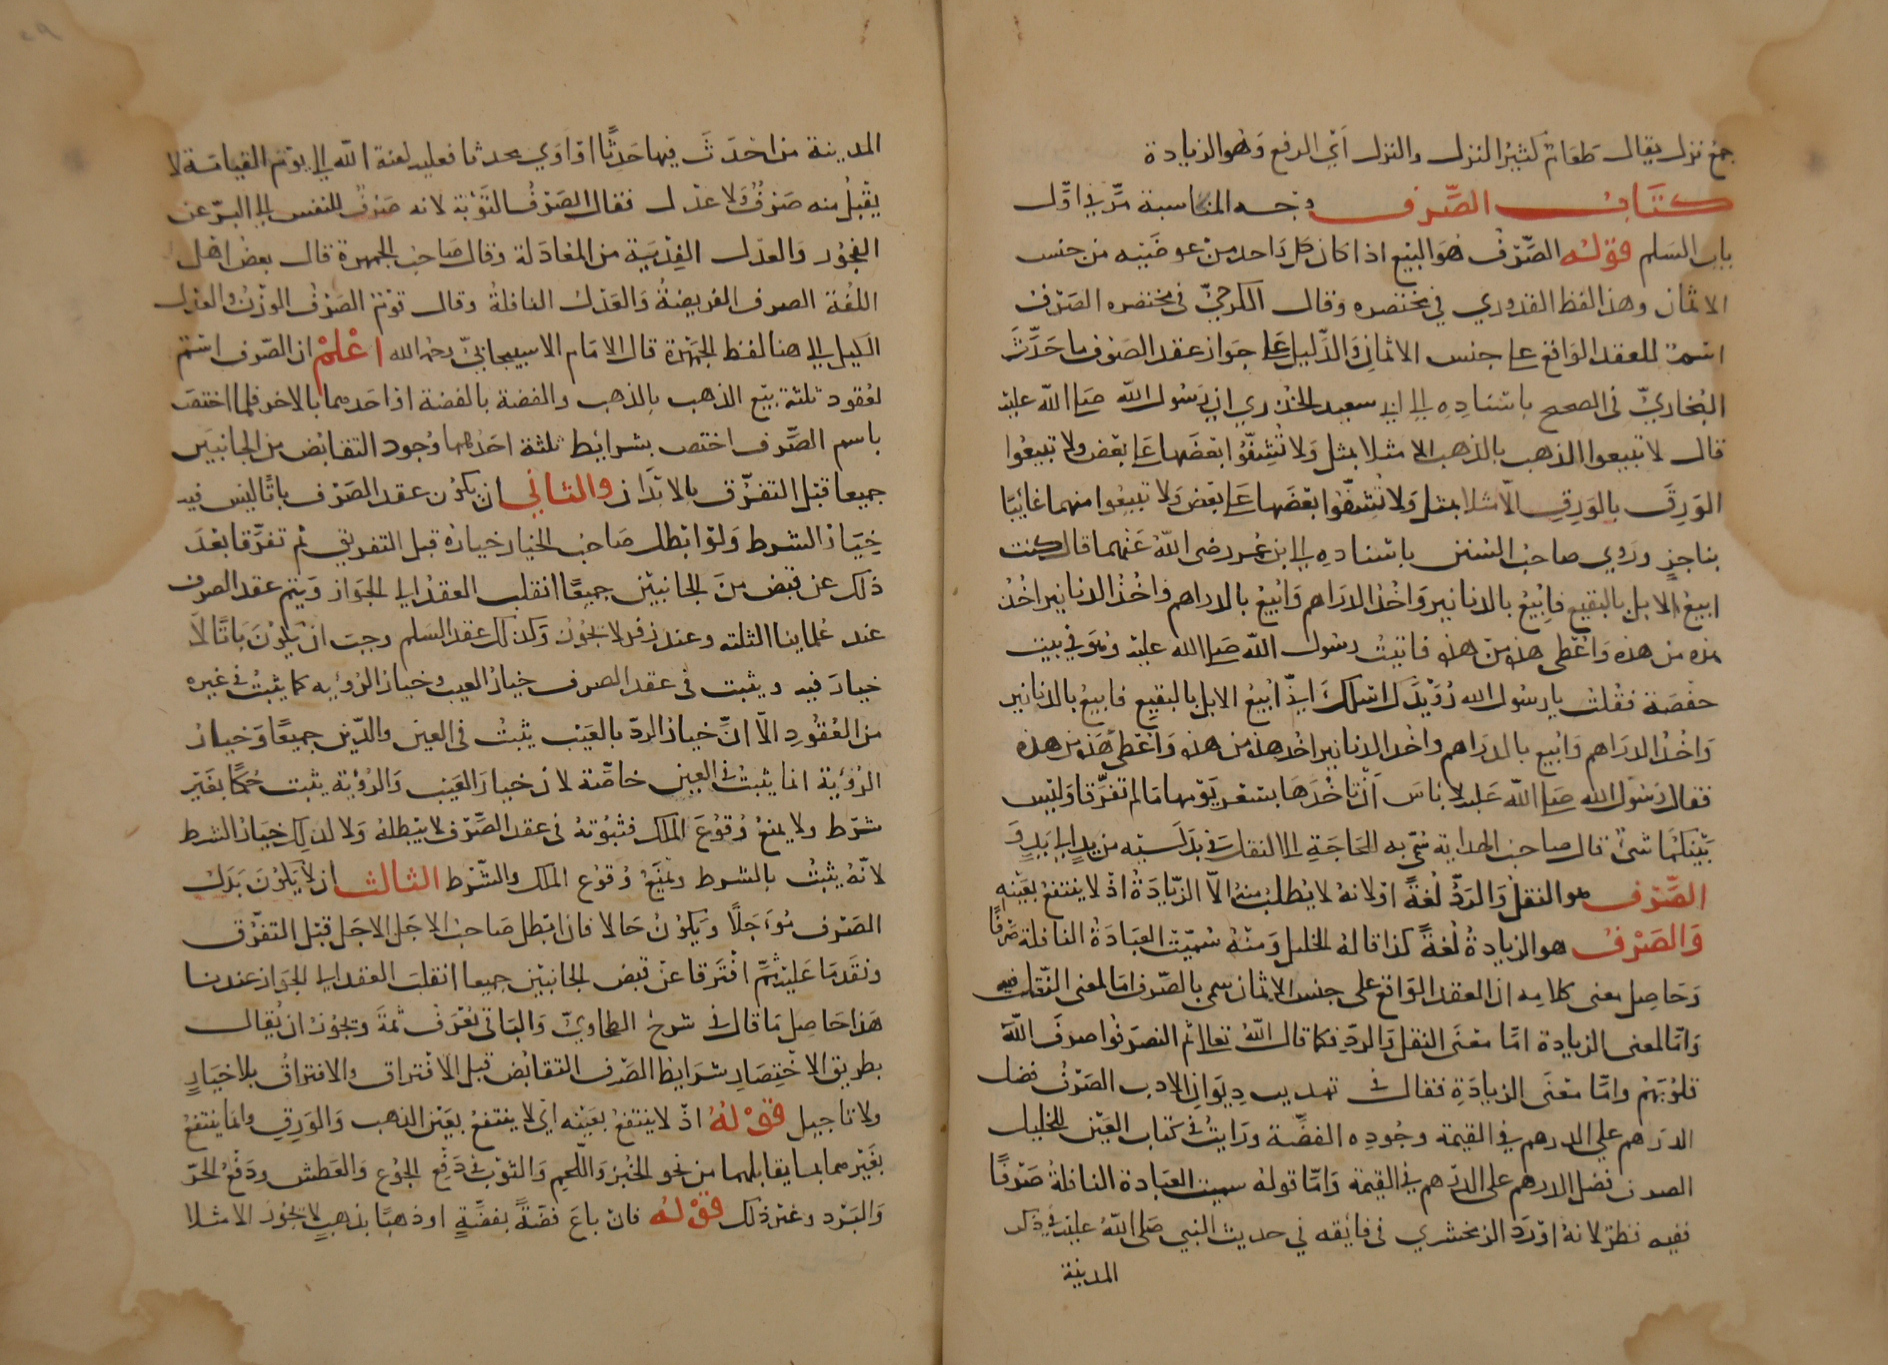 جمع نزل يقال طعام كثير النزل والنزل أي الريع وهو الزيادة
كتاب الصرف وجه المناسبة مر في اول
باب السلم قوله الصرف هو البيع اذا كان كل واحد من عوضيه من جنس
الاثمان وهذا لفظ القدوري في مختصره وقال الكرخي في مختصره الصرف
اسم للعقد الواقع على جنس الاثمان والدليل على جواز عقد الصرف ما حدث
البخاري في الصحيح باسناده الى ابي سعيد الخدري ان رسول الله صلى الله عليه
قال لا تبيعوا الذهب بالذهب الا مثلا بمثل ولا تشفوا بعضها على بعض ولا تبيعوا
الورق بالورق الا مثلا بمثل ولا تشفوا بعضها على بعض ولا تبيعوا منهما غائبا
بناجز وروي صاحب السنن باسناده الى ابن عمر رضى الله عنهما قال كنت
ابيع الابل بالبقيع فابيع بالدنانير واخذ الدراهم وابيع بالدراهم واخذ الدنانير اخذ
هذه من هذه واعطى هذه من هذه فاتيت رسول الله صلى الله عليه وهو في بيت
حفصة فقلت يا رسول الله رويدك اسلك اني ابيع الابل بالبقيع فابيع بالدنانير
واخذ الدراهم وابيع بالدراهم واخذ الدنانير اخذ هذه من هذه واعطى هذه من هذه
فقال رسول الله صلى الله عليه لا باس ان تاخذها بسعر يومها ما لم تفرقا وليس
بينكما شئ قال صاحب الهداية سمي به للحاجة الى النقل في بدليه من يد الى يد و
الصرف هو النقل والرد لغة او لانه لا يطلب منه الا الزيادة اذ لا ينتفع بعينه
والصرف هو الزيادة لغة كذا قاله الخليل ومنه سميت العبادة النافلة صرفا
وحاصل معنى كلامه ان العقد الواقع على جنس الاثمان سمي بالصرف اما لمعنى النقل فيه
واما لمعنى الزيادة اما معنى النقل والرد فكما قال الله تعالى ثم انصرفوا صرف الله
قلوبهم واما معنى الزيادة فقال في تهذيب ديوان الادب الصرف فضل
الدرهم على الدرهم في القيمة وجوده الفضة ورايت في كتاب العين للخليل
الصرف فضل الدرهم على الدرهم في القيمة واما قوله سميت العبادة النافلة صرفا
ففيه نظر لانه اورد الزمخشري في فائقه في حديث النبي صلى الله عليه في ذكر
المدينة
المدينة من احدث فيها حدثا او اوي محدثا فعليه لعنة الله الى يوم القيامة لا
يقبل منه صرف ولا عدل فقال الصرف التوبة لانه صرف للنفس الى البر عن
الفجور والعدل الفدية من المعادلة وقال صاحب الجمهرة قال بعض اهل
اللغة الصرف الفريضة والعدل النافلة وقال قوم الصرف الوزن والعدل
الكيل الى هنا لفظ الجمهرة قال الامام الاسبيجابي رحمه الله اعلم ان الصرف اسم
لعقود ثلثة بيع الذهب بالذهب والفضة بالفضة او احدهما بالاخر فلما اختص
باسم الصرف اختص بشرايط ثلثة احدها وجود التقابض من الجانبين
جميعا قبل التفرق بالابدان والثاني ان يكون عقد الصرف باتا ليس فيه
خيار الشرط ولو ابطل صاحب الخيار خياره قبل التفريق ثم تفرقا بعد
ذلك عن قبض من الجانبين جميعا انقلب العقد الى الجواز ويتم عقد الصرف
عند علماينا الثلثه وعند زفر لا يجوز وكذلك عقد السلم وجب ان يكون باتا لا
خيار فيه ويثبت في عقد الصرف خيار العيب وخيار الرؤيه كما يثبت في غيره
من العقود الا ان خيار الرد بالعيب يثبت في العين والدين جميعا وخيار
الرؤية انما يثبت في العين خاصة لان خيار العيب والرؤية يثبت حكما بغير
شرط ولا يمنع وقوع الملك فثبوته في عقد الصرف لا يبطله ولا كذلك خيار الشرط
لانه يثبت بالشرط ويمنع وقوع الملك والشرط الثالث ان لا يكون بدل
الصرف مؤجلا ويكون حالا فان ابطل صاحب الاجل الاجل قبل التفرق
ونقد ما عليه ثم افترقا عن قبض الجانبين جميعا انقلب العقد الى الجواز عندنا
هذا حاصل ما قال في شرح الطحاوي والباقي يعرف ثمة ويجوز ان يقال
بطريق الاختصار شرايط الصرف التقابض قبل الافتراق والافتراق بلا خيار
ولا تاجيل قوله اذ لا ينتفع بعينه اي لا ينتفع بعين الذهب والورق وانما ينتفع
بغيرهما بما يقابلهما من نحو الخبز واللحم والثوب في دفع الجوع والعطش ودفع الحر
والبرد وغير ذلك قوله فان باع فضة بفضة او ذهبا بذهب لا يجوز الا مثلا